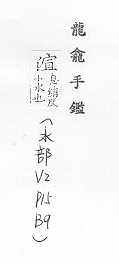 龍龕手鑑
渲息絹反小水也(水部V2P15B9)